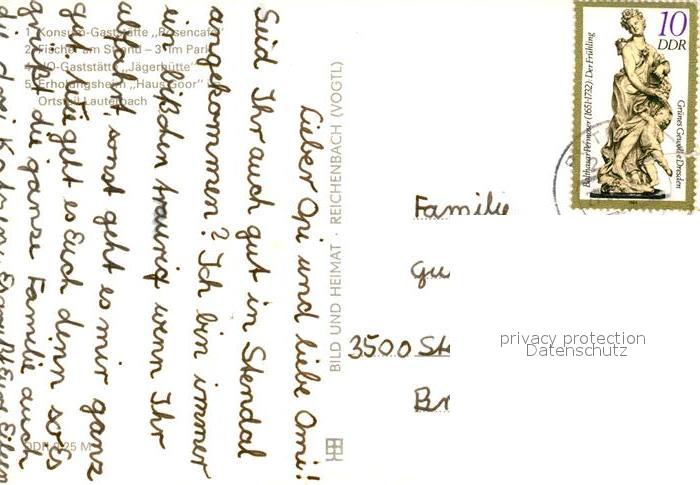 1 Konsum-Gaststätte „Rosencafé"
2 Fischer am Strand – 3 Im Park
HO-Gaststätte „Jägerhütte"
5 Erholungsheim „Haus Goor"
Ortsteil Lauterbach
DDR 0,25 M
Lieber Opi und liebe Omi!!
Seid Ihr auch gut in Stendal
angekommen? Ich bin immer
ein bißchen traurig wenn Ihr
abfahrt, sonst geht es mir ganz
gut. Wie geht es Euch denn so?Es
grüßt die ganze Familie auch
BILD UND HEIMAT · REICHENBACH (VOGTL)
10
DDR
Balthasar Permoser (1651-1732): Der Frühling
Grünes Gewölbe Dresden
Familie
Gu
3500 Ste
Br
privacy protection
Datenschutz